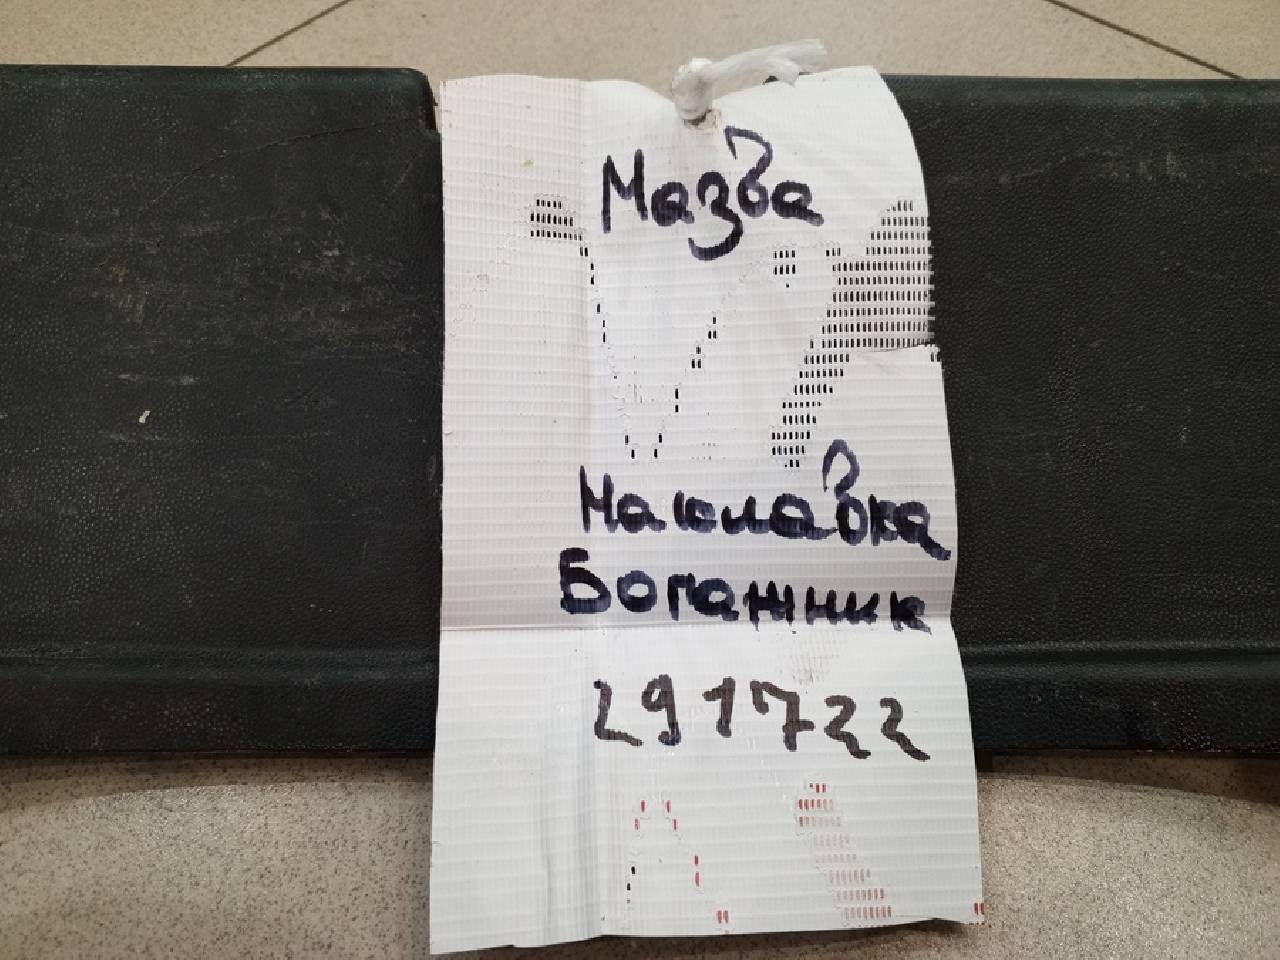 Мазва
Наклавка
Богажник
291722